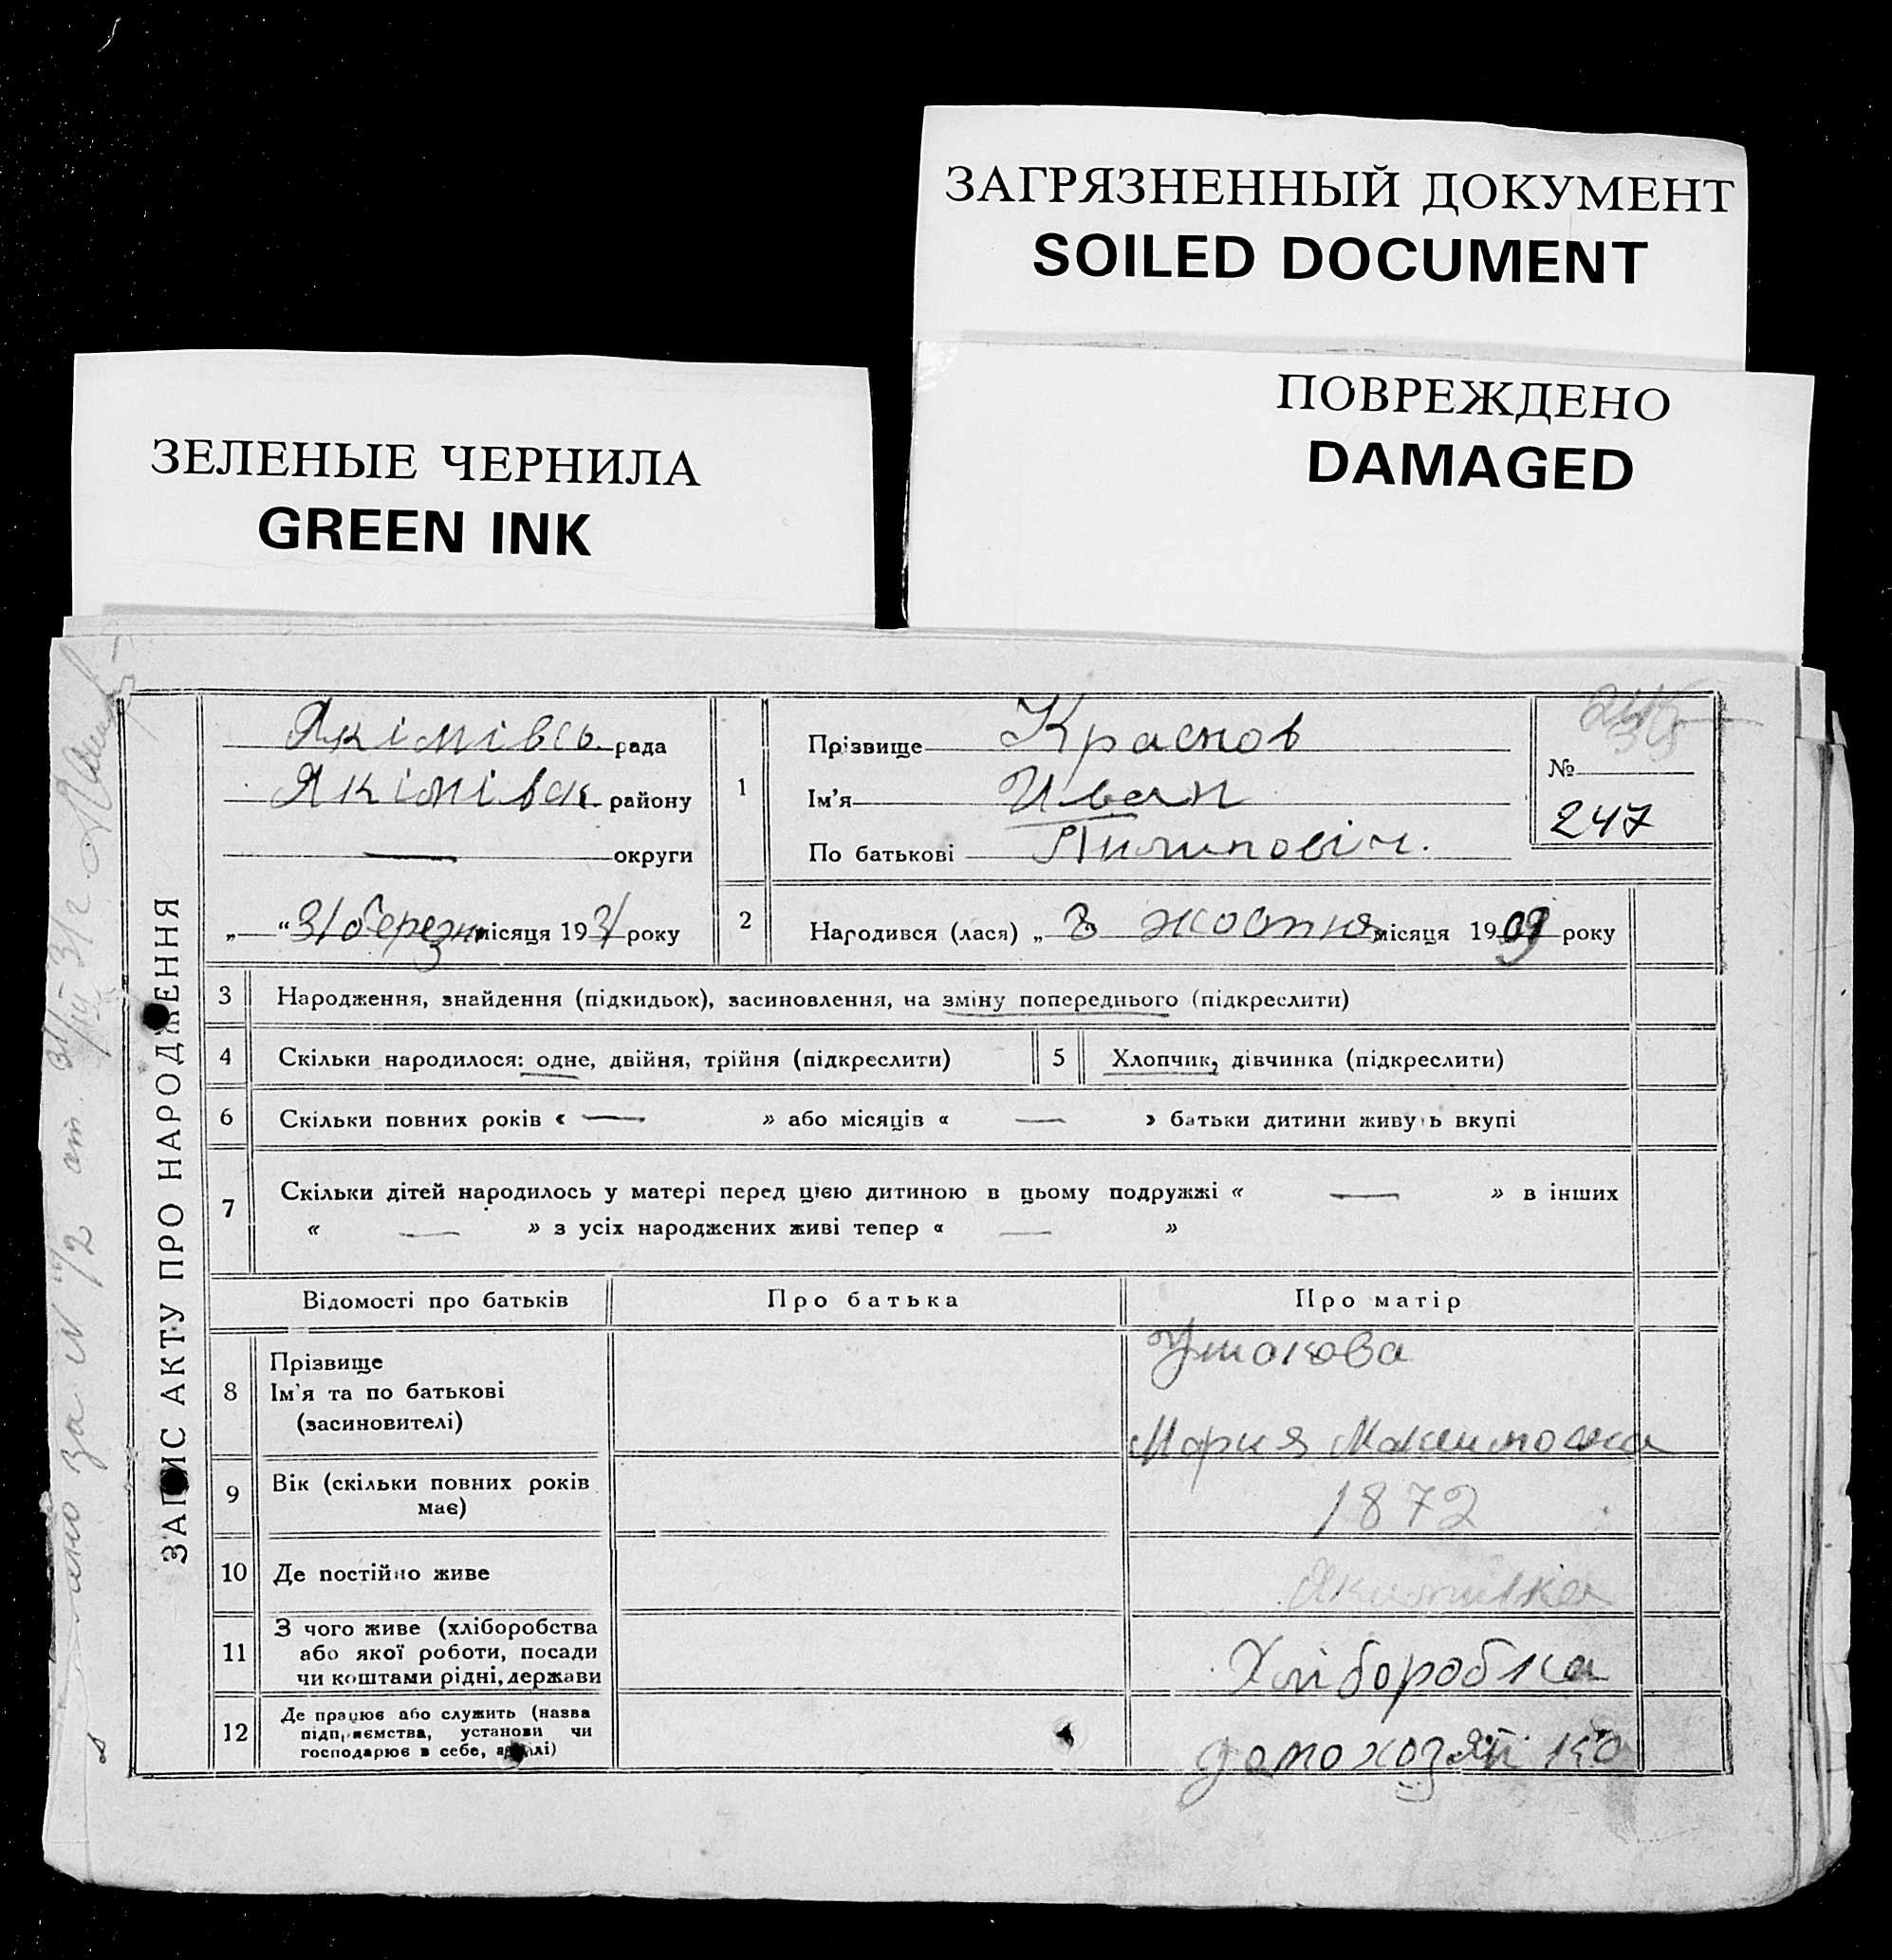 ЗАГРЯЗНЕННЫЙ ДОКУМЕНТ
SOILED DOCUMENT
ПОВРЕЖДЕНО
DAMAGED
ЗЕЛЕНЫЕ ЧЕРНИЛА
GREEN INK
ЗАПИС АКТУ ПРО НАРОДЖЕННЯ
Якімівсь рада
Якімівськ району
— округи
„ “ 31 березня місяця 1931 року
1
Прізвище Краснов
Ім'я Иван
По батькові Пилипович.
№
247
2
Народився (лася) „ 8 жовтня місяця 1909 року
3 Народження, знайдення (підкидьок), засиновлення, на зміну попереднього (підкреслити)
4 Скільки народилося: одне, двійня, трійня (підкреслити)
5 Хлопчик, дівчинка (підкреслити)
6 Скільки повних років « — » або місяців « — » батьки дитини живуть вкупі
7 Скільки дітей народилось у матері перед цією дитиною в цьому подружжі « — » в інших
« — » з усіх народжених живі тепер « — »
Відомості про батьків Про батька Про матір
8 Прізвище
Ім'я та по батькові
(засиновителі)
Ушакова
Мария Максимовна
9 Вік (скільки повних років
має)
1872
10 Де постійно живе
Якимівка
11 З чого живе (хліборобства
або якої роботи, посади
чи коштами рідні, держави
Хліборобка
12 Де працює або служить (назва
підприємства, установи чи
господарює в себе, артілі)
домохозяйка